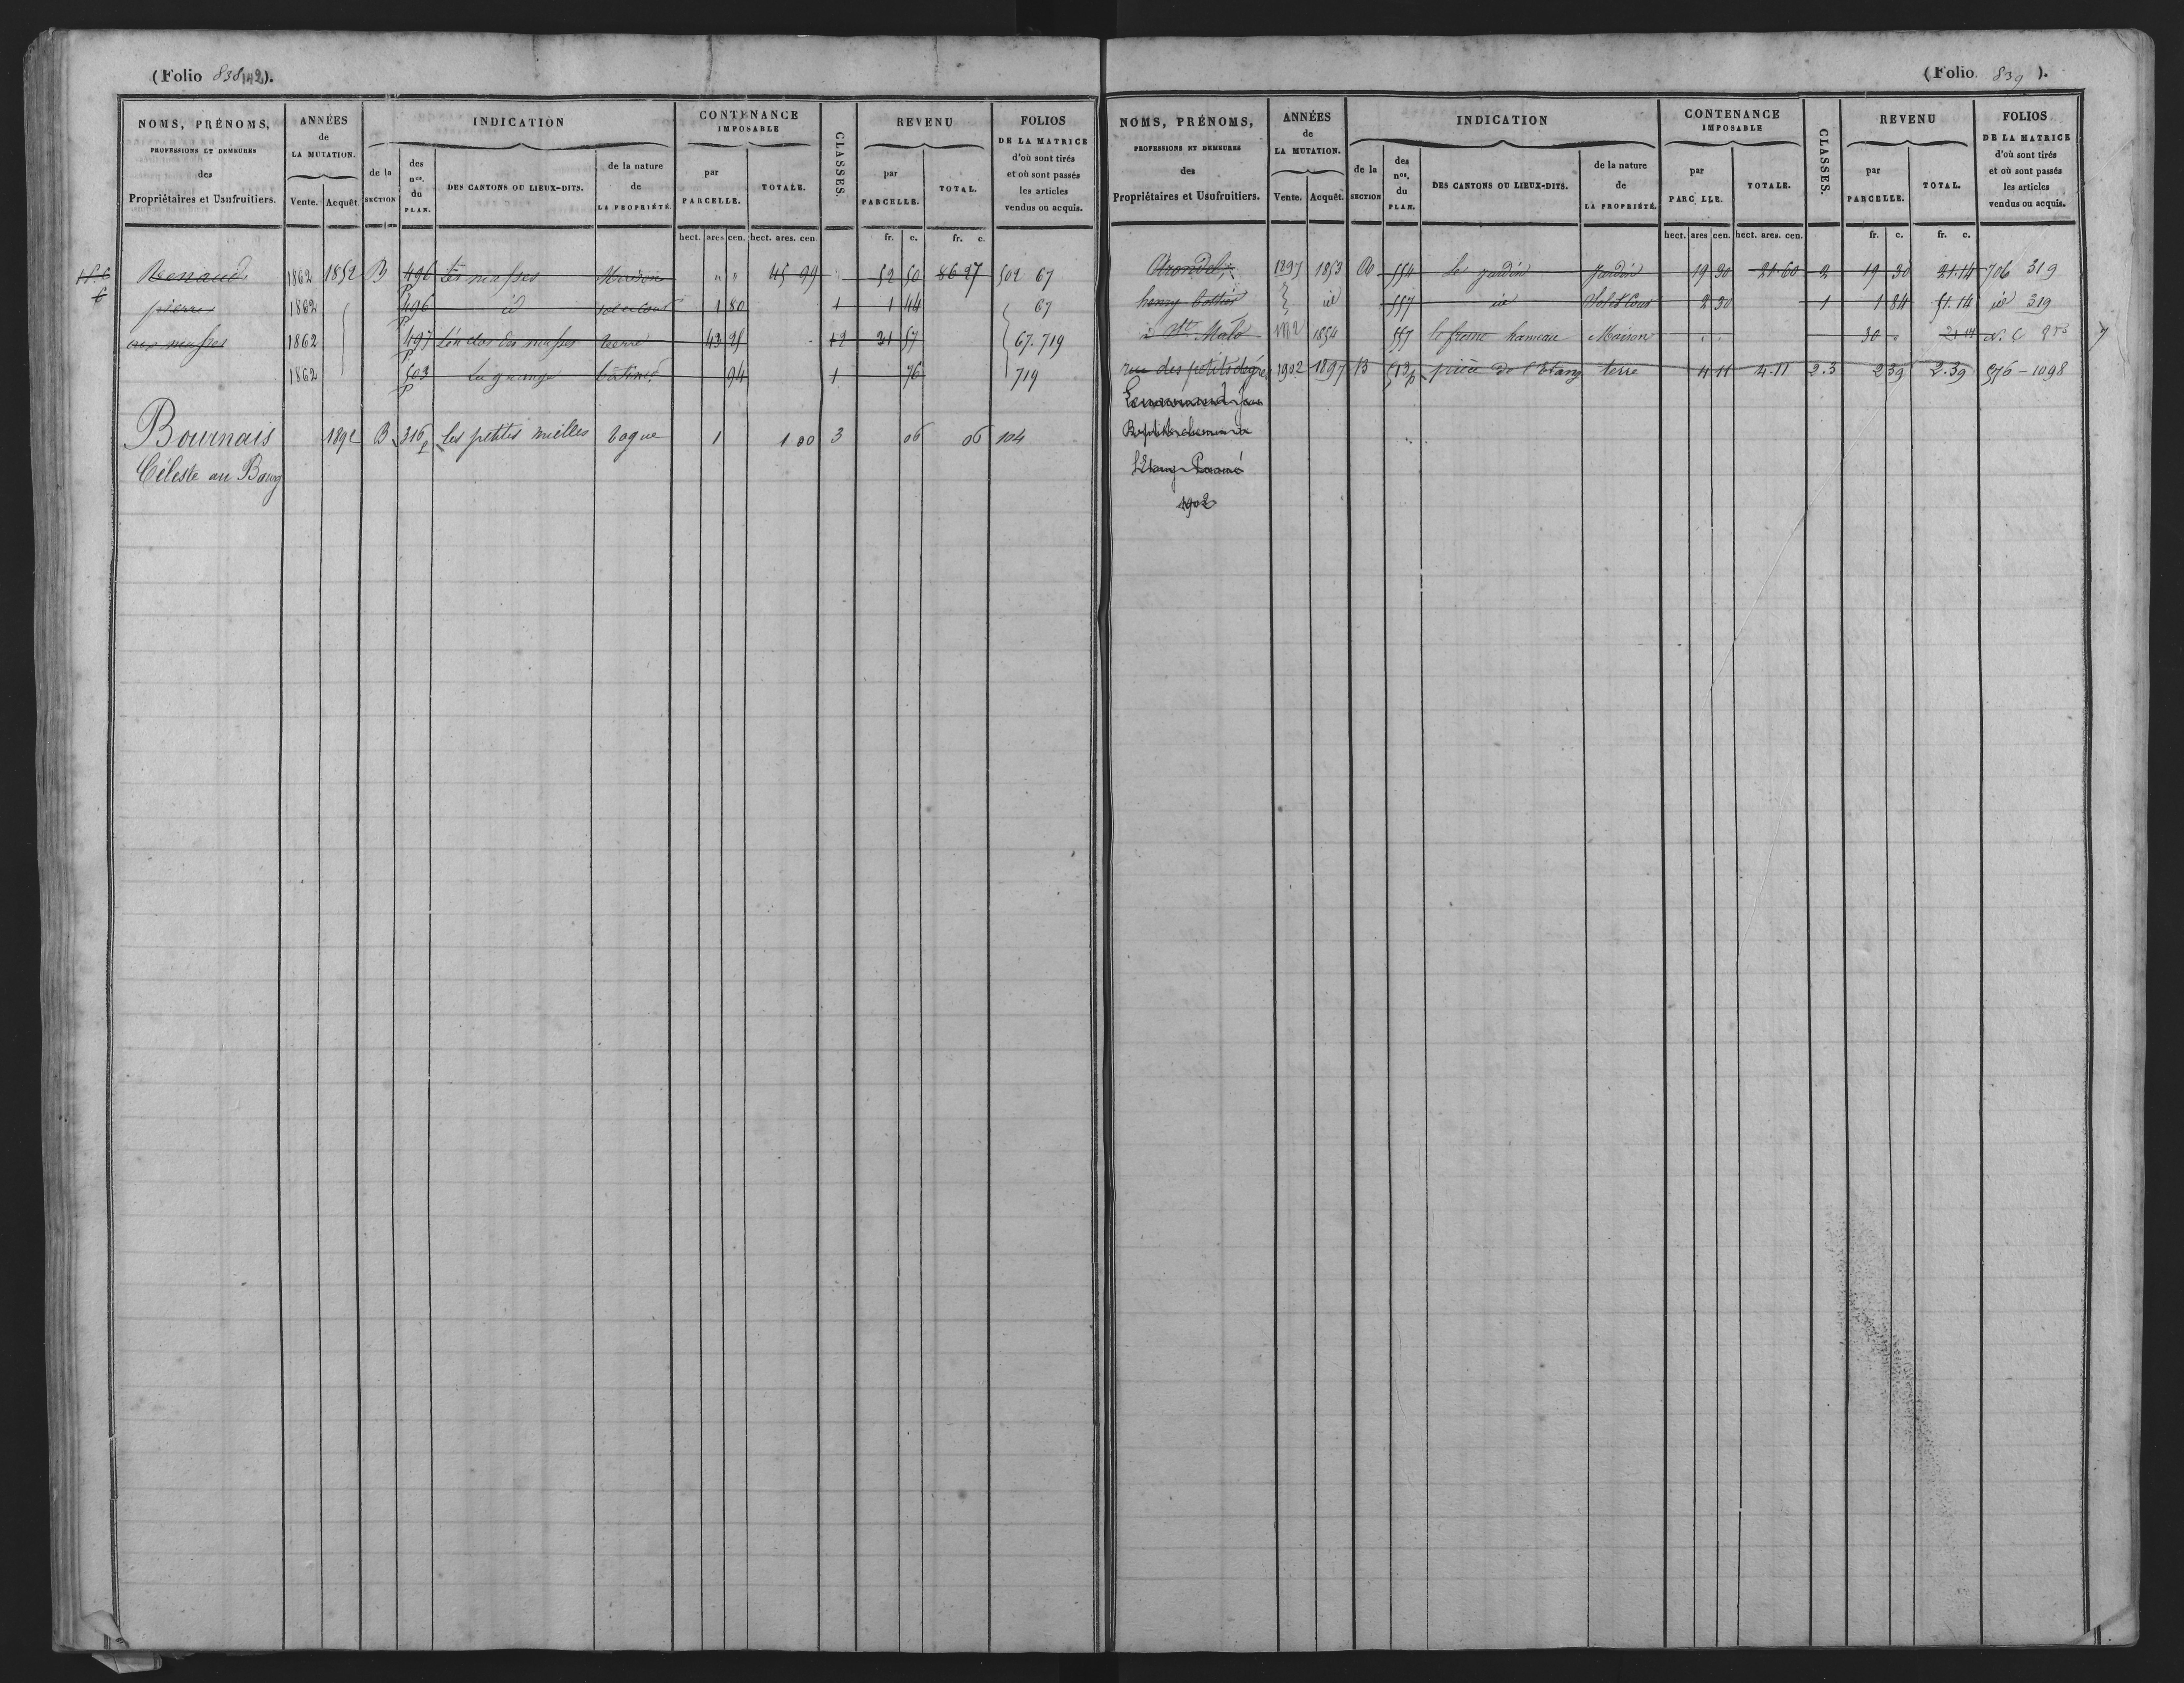 (Folio 838 142).
NOMS, PRÉNOMS,
PROFESSIONS ET DEMEURES
des
Propriétaires et Usufruitiers.
ANNÉES
de
LA MUTATION.
Vente. Acquêt.
INDICATION
de la
SECTION
des
nos.
du
PLAN.
DES CANTONS OU LIEUX-DITS.
de la nature
de
LA PROPRIÉTÉ.
CONTENANCE
IMPOSABLE
par
PARCELLE.
TOTALE.
CLASSES.
REVENU
par
PARCELLE.
TOTAL.
FOLIOS
DE LA MATRICE
d'où sont tirés
et où sont passés
les articles
vendus ou acquis.
hect. ares cen. hect. ares. cen. fr. c. fr. c.
Renaud 1862 1852 B 496 Les masses Maison " " 45 99 52 50 86 27 502 67
pierre 1862 496 id sol et cour 1 80 1 1 44 67
aux masses 1862 497 L'en clos des masses terre 43 25 1 2 31 57 67. 719
1862 503 La grange bâtimt 94 1 76 719
Bournais 1892 B 316p Les petites mielles vague 1 1 00 3 06 06 104
Céleste au Bourg
(Folio. 839 ).
NOMS, PRÉNOMS,
PROFESSIONS ET DEMEURES
des
Propriétaires et Usufruitiers.
ANNÉES
de
LA MUTATION.
Vente. Acquêt.
INDICATION
de la
SECTION
des
nos.
du
PLAN.
DES CANTONS OU LIEUX-DITS.
de la nature
de
LA PROPRIÉTÉ.
CONTENANCE
IMPOSABLE
par
PARC LLE.
TOTALE.
CLASSES.
REVENU
par
PARCELLE.
TOTAL.
FOLIOS
DE LA MATRICE
d'où sont tirés
et où sont passés
les articles
vendus ou acquis.
hect. ares cen. hect. ares. cen. fr. c. fr. c.
Arondel 1853 554 le jardin Jardin 19 30 21 60 2 19 30 21.14 706 319
henry id 557 id Sol et Cour 2 30 1 1 84 51.14 id 319
à St Malo 1854 557 hameau Maison 30 21 14
rue des petits degrés 1902 1897 B 512p pièce de l'Etang terre 4 11 4.11 2.3 2 39 2.39 576 - 1098
L'Etang Paramé
1902